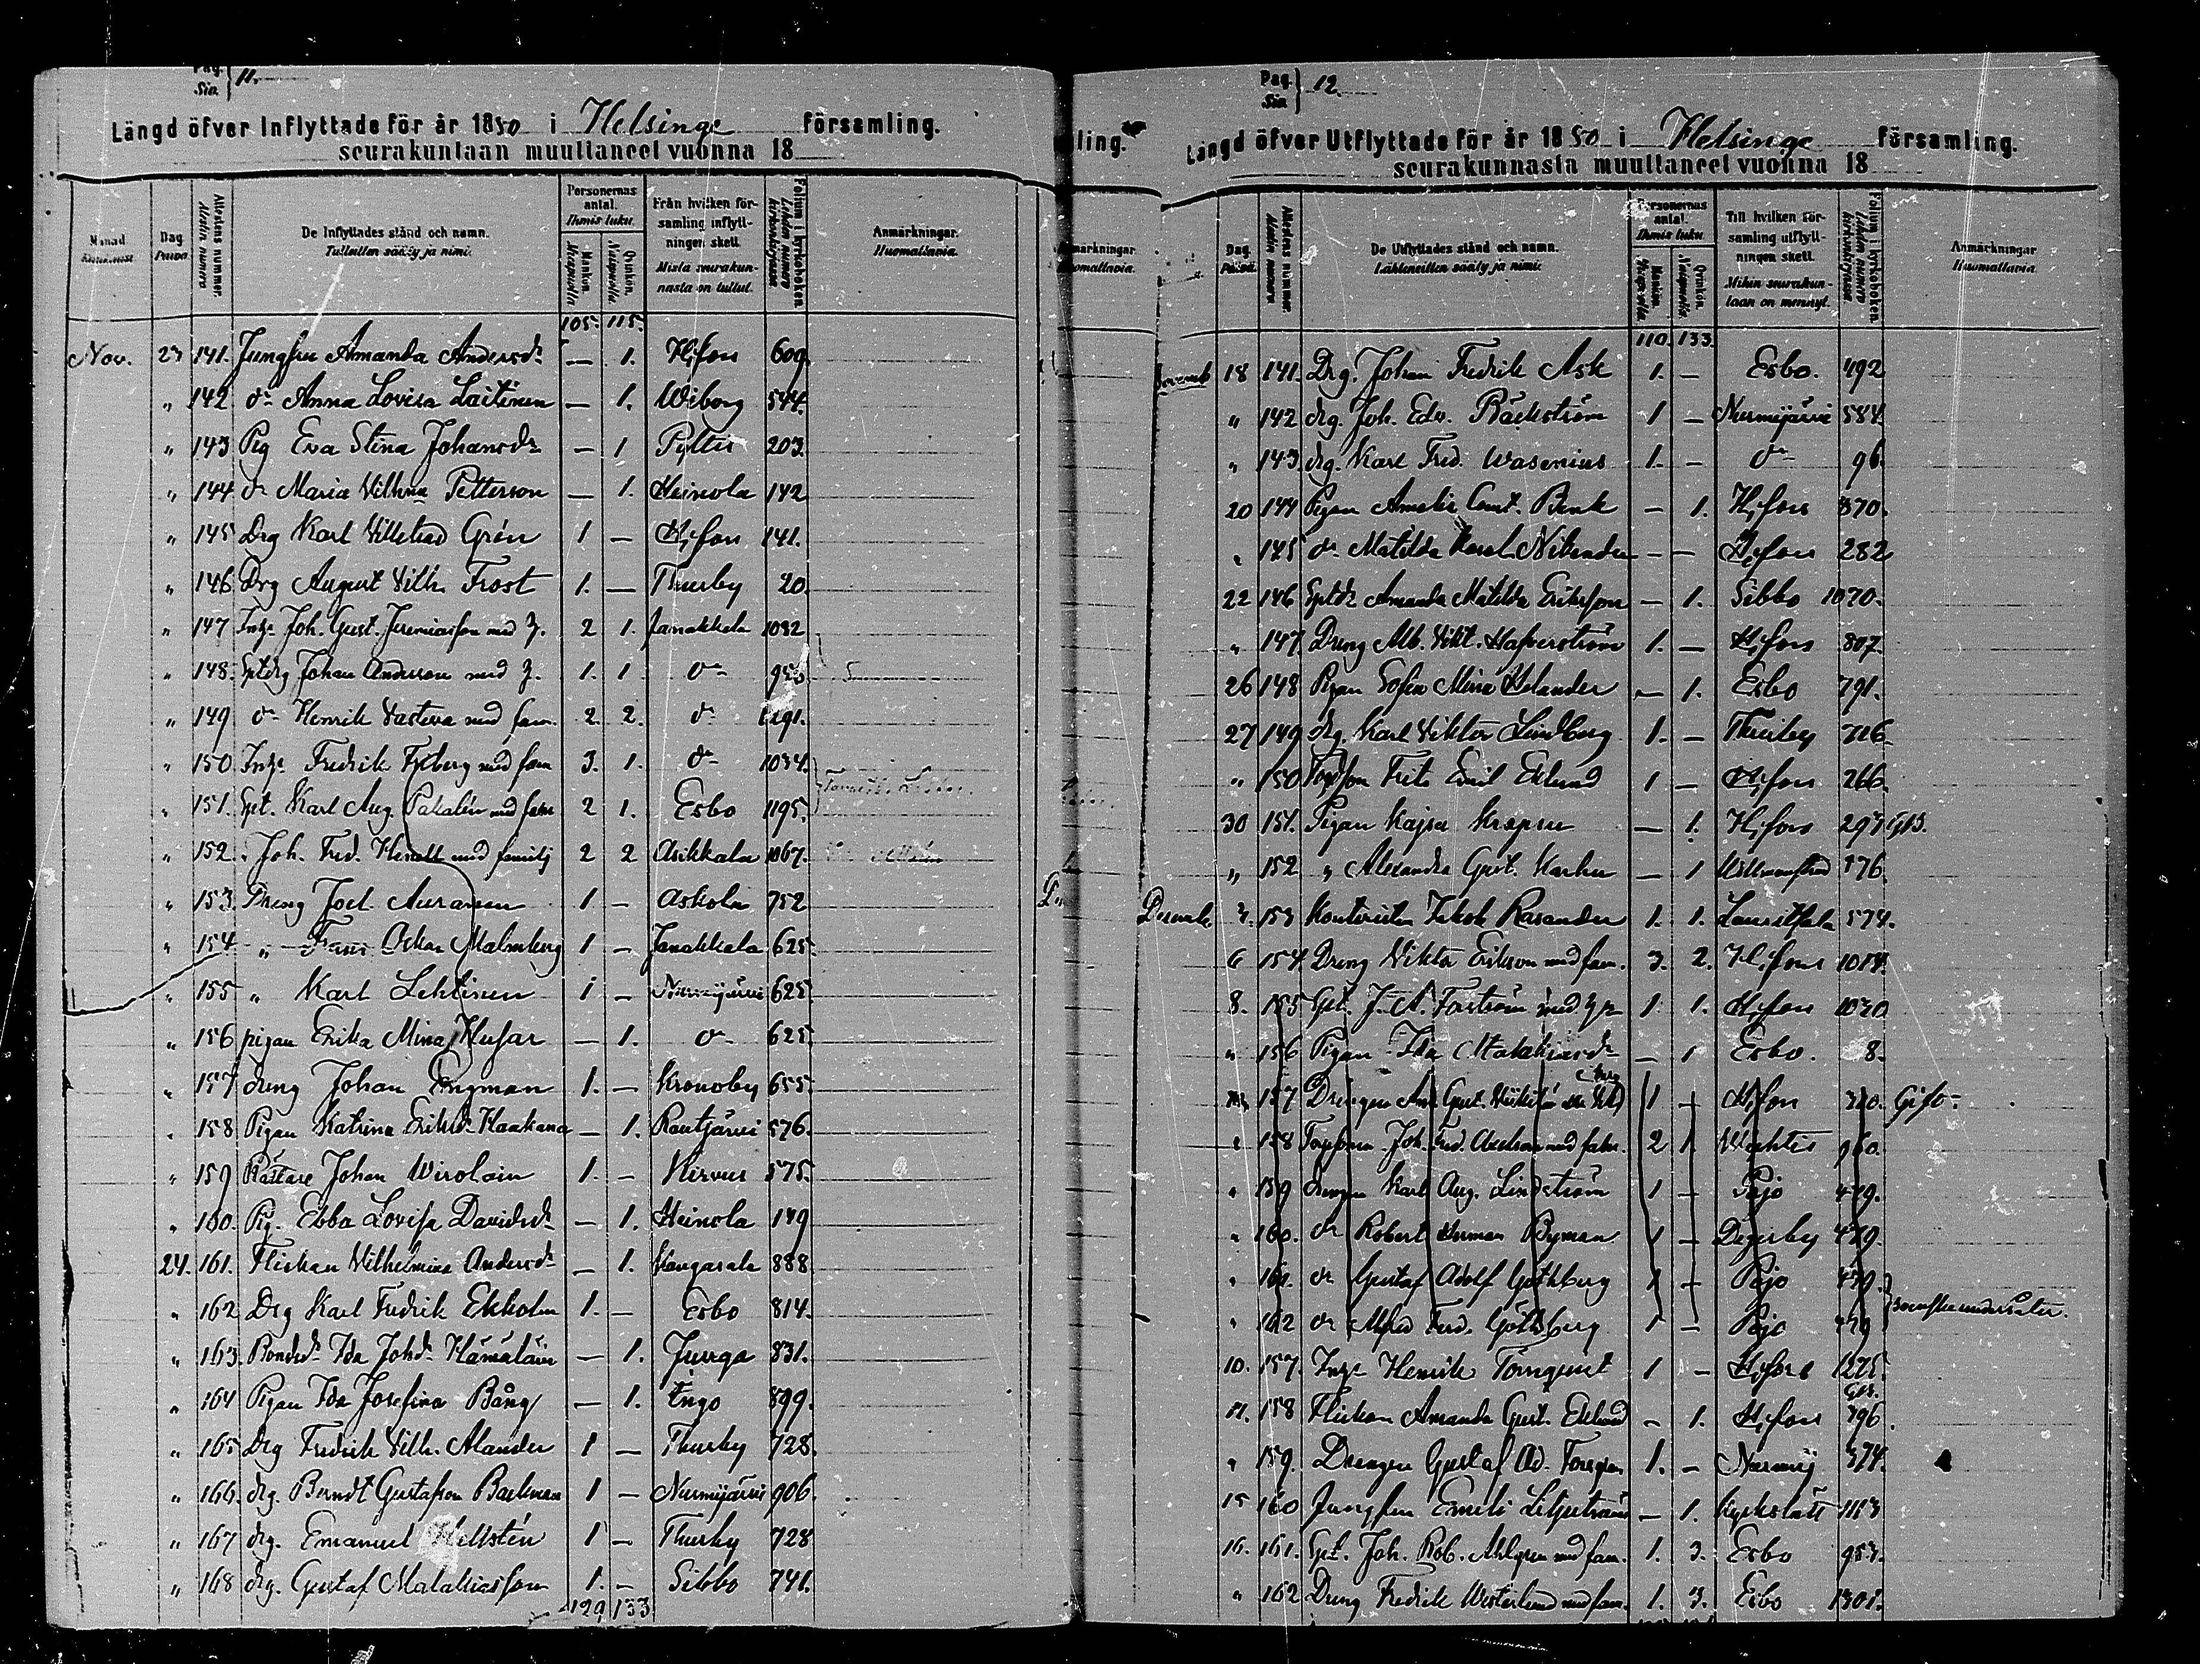 Pag. Sia. } 11.
Längd öfver Inflyttade för år 1880 i Helsinge församling.
seurakuntaan muuttaneet vuonna 18
Månad Dag Päivä Attestens nummer. Alestin numero De Inflyttades stånd och namn. Tulleitten sääty ja nimi. Personernas antal. Ihmis luku. Mankön. Miespuolia Qvinkön. Naispuolia Från hvilken församling inflyttningen skett. Mistä seurakunnasta on tullut. Folium i kyrkoboken. Lehden numero kirkonkirjassa Anmärkningar. Huomattavia.
105. 115.
Nov. 23 141. Jungfru Amanda Andersdr — 1. H:fors 609.
" 142 do Anna Lovisa Laitinen — 1. Wiborg 544.
" 143 Pig Eva Stina Johansdr — 1 Pyttis 203.
" 144 do Maria Vilhna Petterson — 1. Heinola 142
" 145 Drg Karl Villehad Grén 1 — H:fors 141.
" 146 Drg August Vilh. Frost 1. — Thusby 20.
" 147 Inh. Joh. Gust. Jeremiasson med h. 2 1. Janakkala 1032
" 148. Sptdrg Johan Anderson med h. 1. 1 do
" 149 do Henrik Vasteva med fam. 2. 2. do 1291.
" 150. Inh. Fredrik Friberg med fam 3. 1. do 1034.
" 151. Spt. Karl Aug. Pakalén med fam 2 1. Esbo 1195.
" 152. Joh. Fred. Henell med familj 2 2 Asikkala 1067.
" 153. Dreng Joel Auranen 1 — Askola 752
" 154 " Frans Oskar Malmberg 1 — Janakkala 625
" 155 " Karl Lehtinen 1 — Nurmijärvi 625
" 156 pigan Erika Mina Husar — 1. do 625
" 157 dreng Johan Engman 1. — Kronoby 655
" 158 Pigan Katrina Eriksdr Kaakana — 1. Rautjärvi 576.
" 159 Rättare Johan Wirolain 1. — Kirvus 575.
" 160. Pig. Ebba Lovisa Davidsdr — 1. Heinola 149
24. 161. Flickan Vilhelmina Andersdr — 1. Kangasala 888
" 162 Drg Karl Fredrik Ekholm 1. — Esbo 814.
" 163. Bondedr Ida Johdr Hämäläin — 1. Junga 831.
" 164 Pigan Ida Josefina Bång — 1. Ingo 899.
" 165 Drg Fredrik Vilh. Alander 1 — Thusby 728.
" 166. drg. Berndt Gustafson Backman 1 — Nurmijärvi 906.
" 167 drg. Emanuel Hellstén 1 — Thusby 728
" 168 drg. Gustaf Malakiasson 1. — Sibbo 741.
129 133
Pag. Sia } 12.
Längd öfver Utflyttade för år 1880 i Helsinge församling.
seurakunnasta muuttaneet vuonna 18
Dag. Päivä. Attestens nummer. Alestin numero De Utflyttades stånd och namn. Lähteneitten sääty ja nimi. Personernas antal. Ihmis luku. Mankön. Qvinkön. Till hvilken församling utflyttningen skett. Mihin seurakuntaan on mennyt. Folium i kyrkoboken. Lehden numero kirkonkirjassa Anmärkningar Huomattavia.
110. 133.
18 141. Drg. Johan Fredrik Ask 1. — Esbo. 492
" 142 drg. Joh. Edv. Bäckström 1 — Nurmijärvi 584.
" 143. drg. Karl Fred. Wasenius 1. — do 96.
20 144 Pigan Amalia Const. Benk — 1. H:fors 870.
" 145 do Matilda Karol. — — H:fors 282
22 146 Sptdr Amanda Matilda Eriksson — 1. Sibbo 1070.
" 147. Dreng Alb. Vikt. Hafverström 1. — H:fors 807.
26 148 Pigan Sofia Mina Helander — 1. Esbo 791.
27 149 drg. Karl Viktor Lindberg 1. — Thusby
" 150 Torpson Frits Emil Eklund 1 — H:fors 266.
30 151. Pigan Kajsa — 1. H:fors 297
" 152 " Alexandra Gust. Karhu — 1 Willmanstrand 176.
Decemb. 3. 153 Kontoristen Jakob Rasander 1. 1. 574.
6 154 Dreng Viktor Erikson med fam. 3. 2. H:fors 1014.
8. 155 Spt. J. A. Forström med h 1. 1. H:fors 1030
" 156 Pigan Ida Malakiasdr — 1 Esbo. 8.
157 Drengen And. Gust. 1 — H:fors 310. Gift.
" 158 Torpson Joh. Fred. Axelson med fam. 2 1 Wichtis 960.
" 159 drengen Karl Aug. Lindström 1 — Pojo 479.
" 160. do Robert Herman Byman 1 — Degerby 479.
" 161. do Gustaf Adolf Göthberg 1 — Pojo 479.
" 162 do Alfred Ferd. Göthberg 1 — Pojo 479 } Svenska undersåter.
10. 157. Inh. Henrik Törnqvist 1 — H:fors 1275.
11. 158 Flickan Amanda Gust. Eklund — 1. H:fors 796
" 159. Drengen Gustaf Ad. Forsgren 1. — Nurmij 374.
15 160 Jungfru Emeli Liljeström — 1. Kyrkslätt 1113
16. 161. Spt. Joh. Rob. Ahlgren med fam. 1. 3. Esbo 953.
" 162 Dreng Fredrik Westerlund med fam. 1. 3. Esbo 1301.